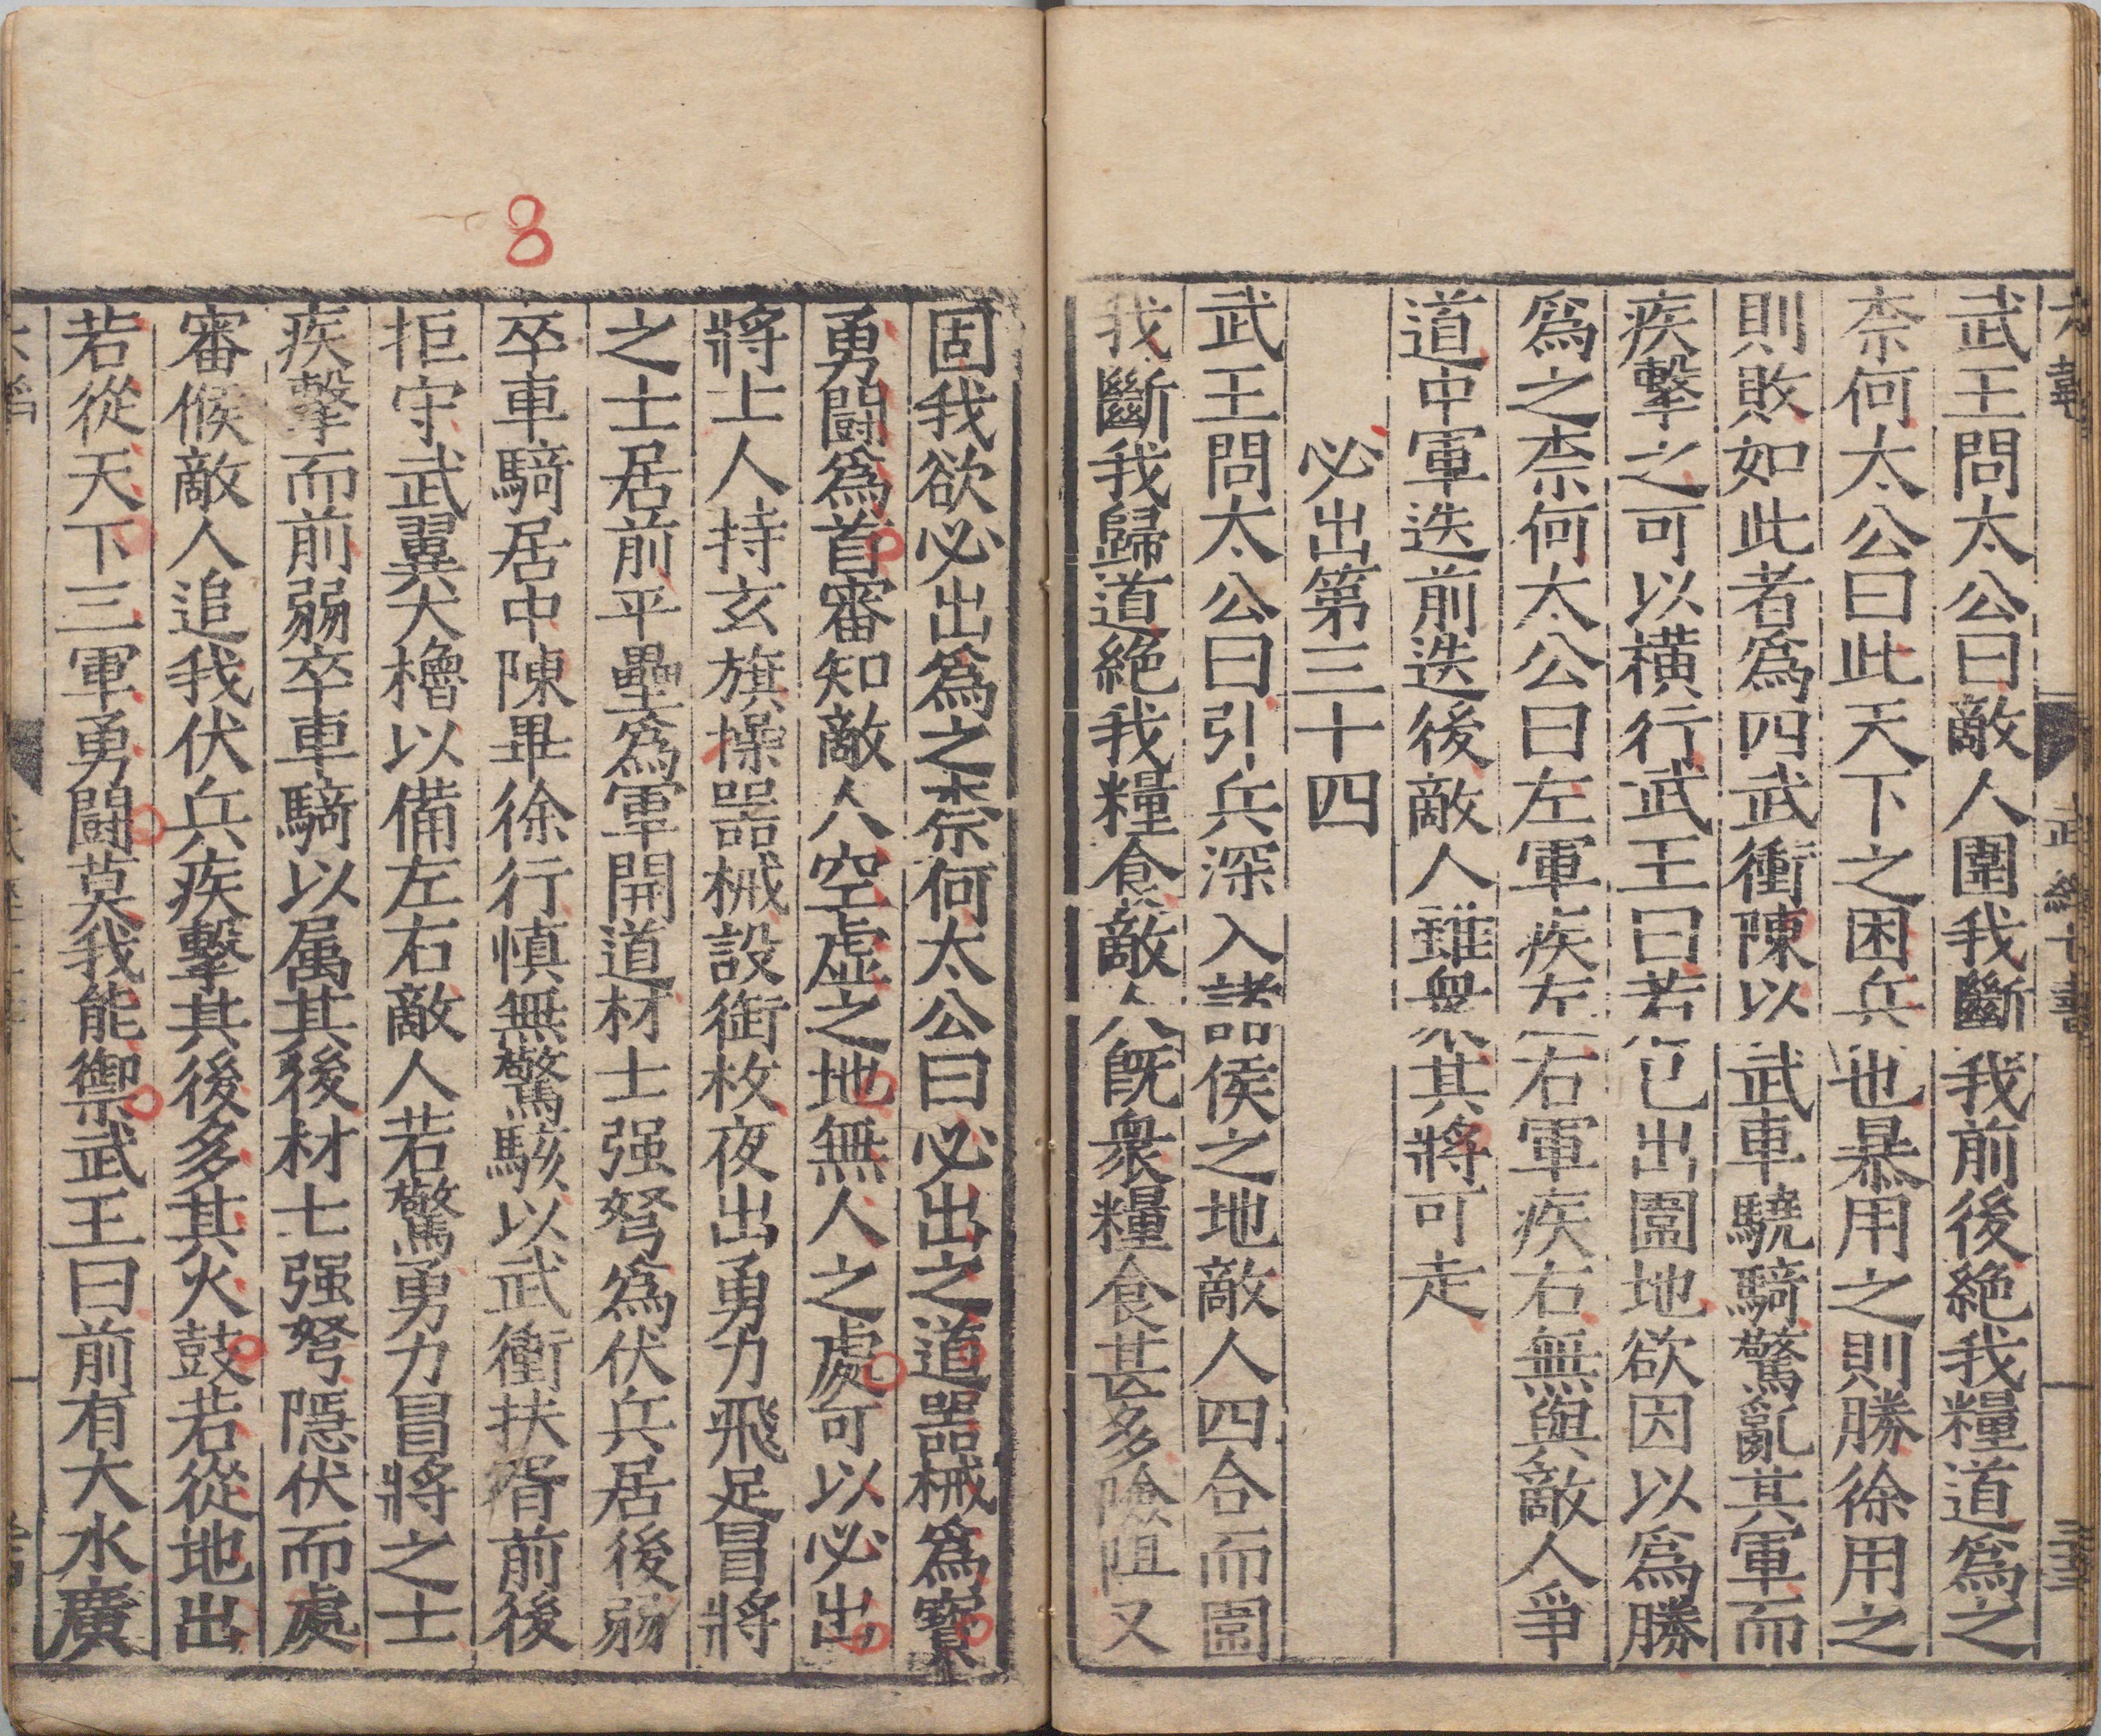 武王問太公曰敵人圍我斷我前後絕我糧道爲之
柰何太公曰此天下之困兵也暴用之則勝徐用之
則敗如此者爲四武衝陳以武車驍騎驚亂其軍而
疾擊之可以橫行武王曰若已出圍地欲因以爲勝
爲之柰何太公曰左軍疾左右軍疾右無與敵人爭
道中軍迭前迭後敵人雖衆其將可走
必出第三十四
武王問太公曰引兵深入諸侯之地敵人四合而圍
我斷我歸道絕我糧食敵人既衆糧食甚多險阻又
8
固我欲必出爲之柰何太公曰必出之道器械爲寶
勇鬪爲首審知敵人空虛之地無人之處可以必出
將士人持玄旗操器械設銜枚夜出勇力飛足冒將
之士居前平壘爲軍開道材士强弩爲伏兵居後弱
卒車騎居中陳畢徐行慎無驚駭以武衝扶胥前後
拒守武翼大櫓以備左右敵人若驚勇力冒將之士
疾擊而前弱卒車騎以属其後材士强弩隱伏而處
審候敵人追我伏兵疾擊其後多其火鼓若從地出
若從天下三軍勇鬪莫我能禦武王曰前有大水廣